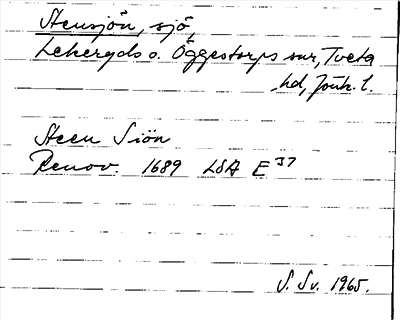 Stensjön, sjö,
Lekeryds o. Öggestorps snr, Tveta
hd, Jönk. l.
Steen Siön
Renov. 1689 LSA E 37
S. Sv. 1965.